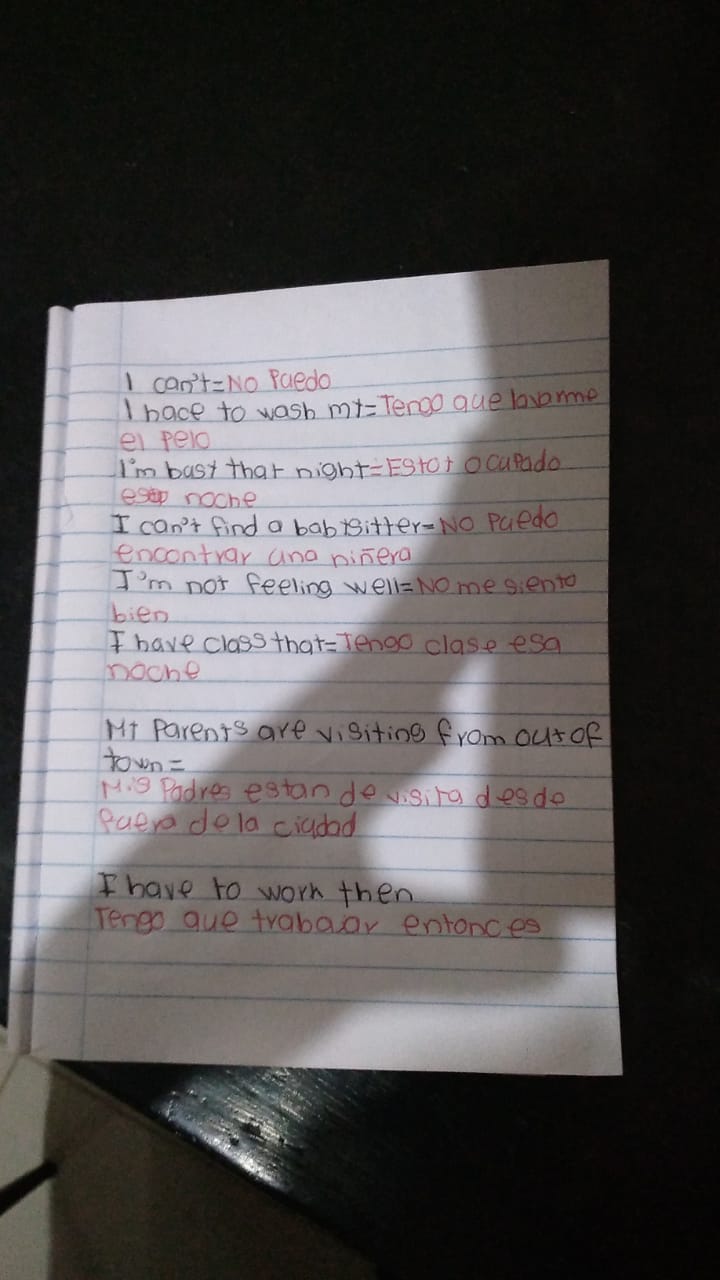 I can't=No Puedo
I hace to wash my=Tengo que lavarme
el pelo
I'm busy that night=Estoy Ocupado
esta noche
I can't find a babysitter=No Puedo
encontrar una niñera
I'm not feeling well=No me siento
bien
I have class that=Tengo clase esa
noche
My Parents are visiting from out of
town=
Mis Padres estan de visita desde
fuera de la ciudad
I have to work then
Tengo que trabajar entonces